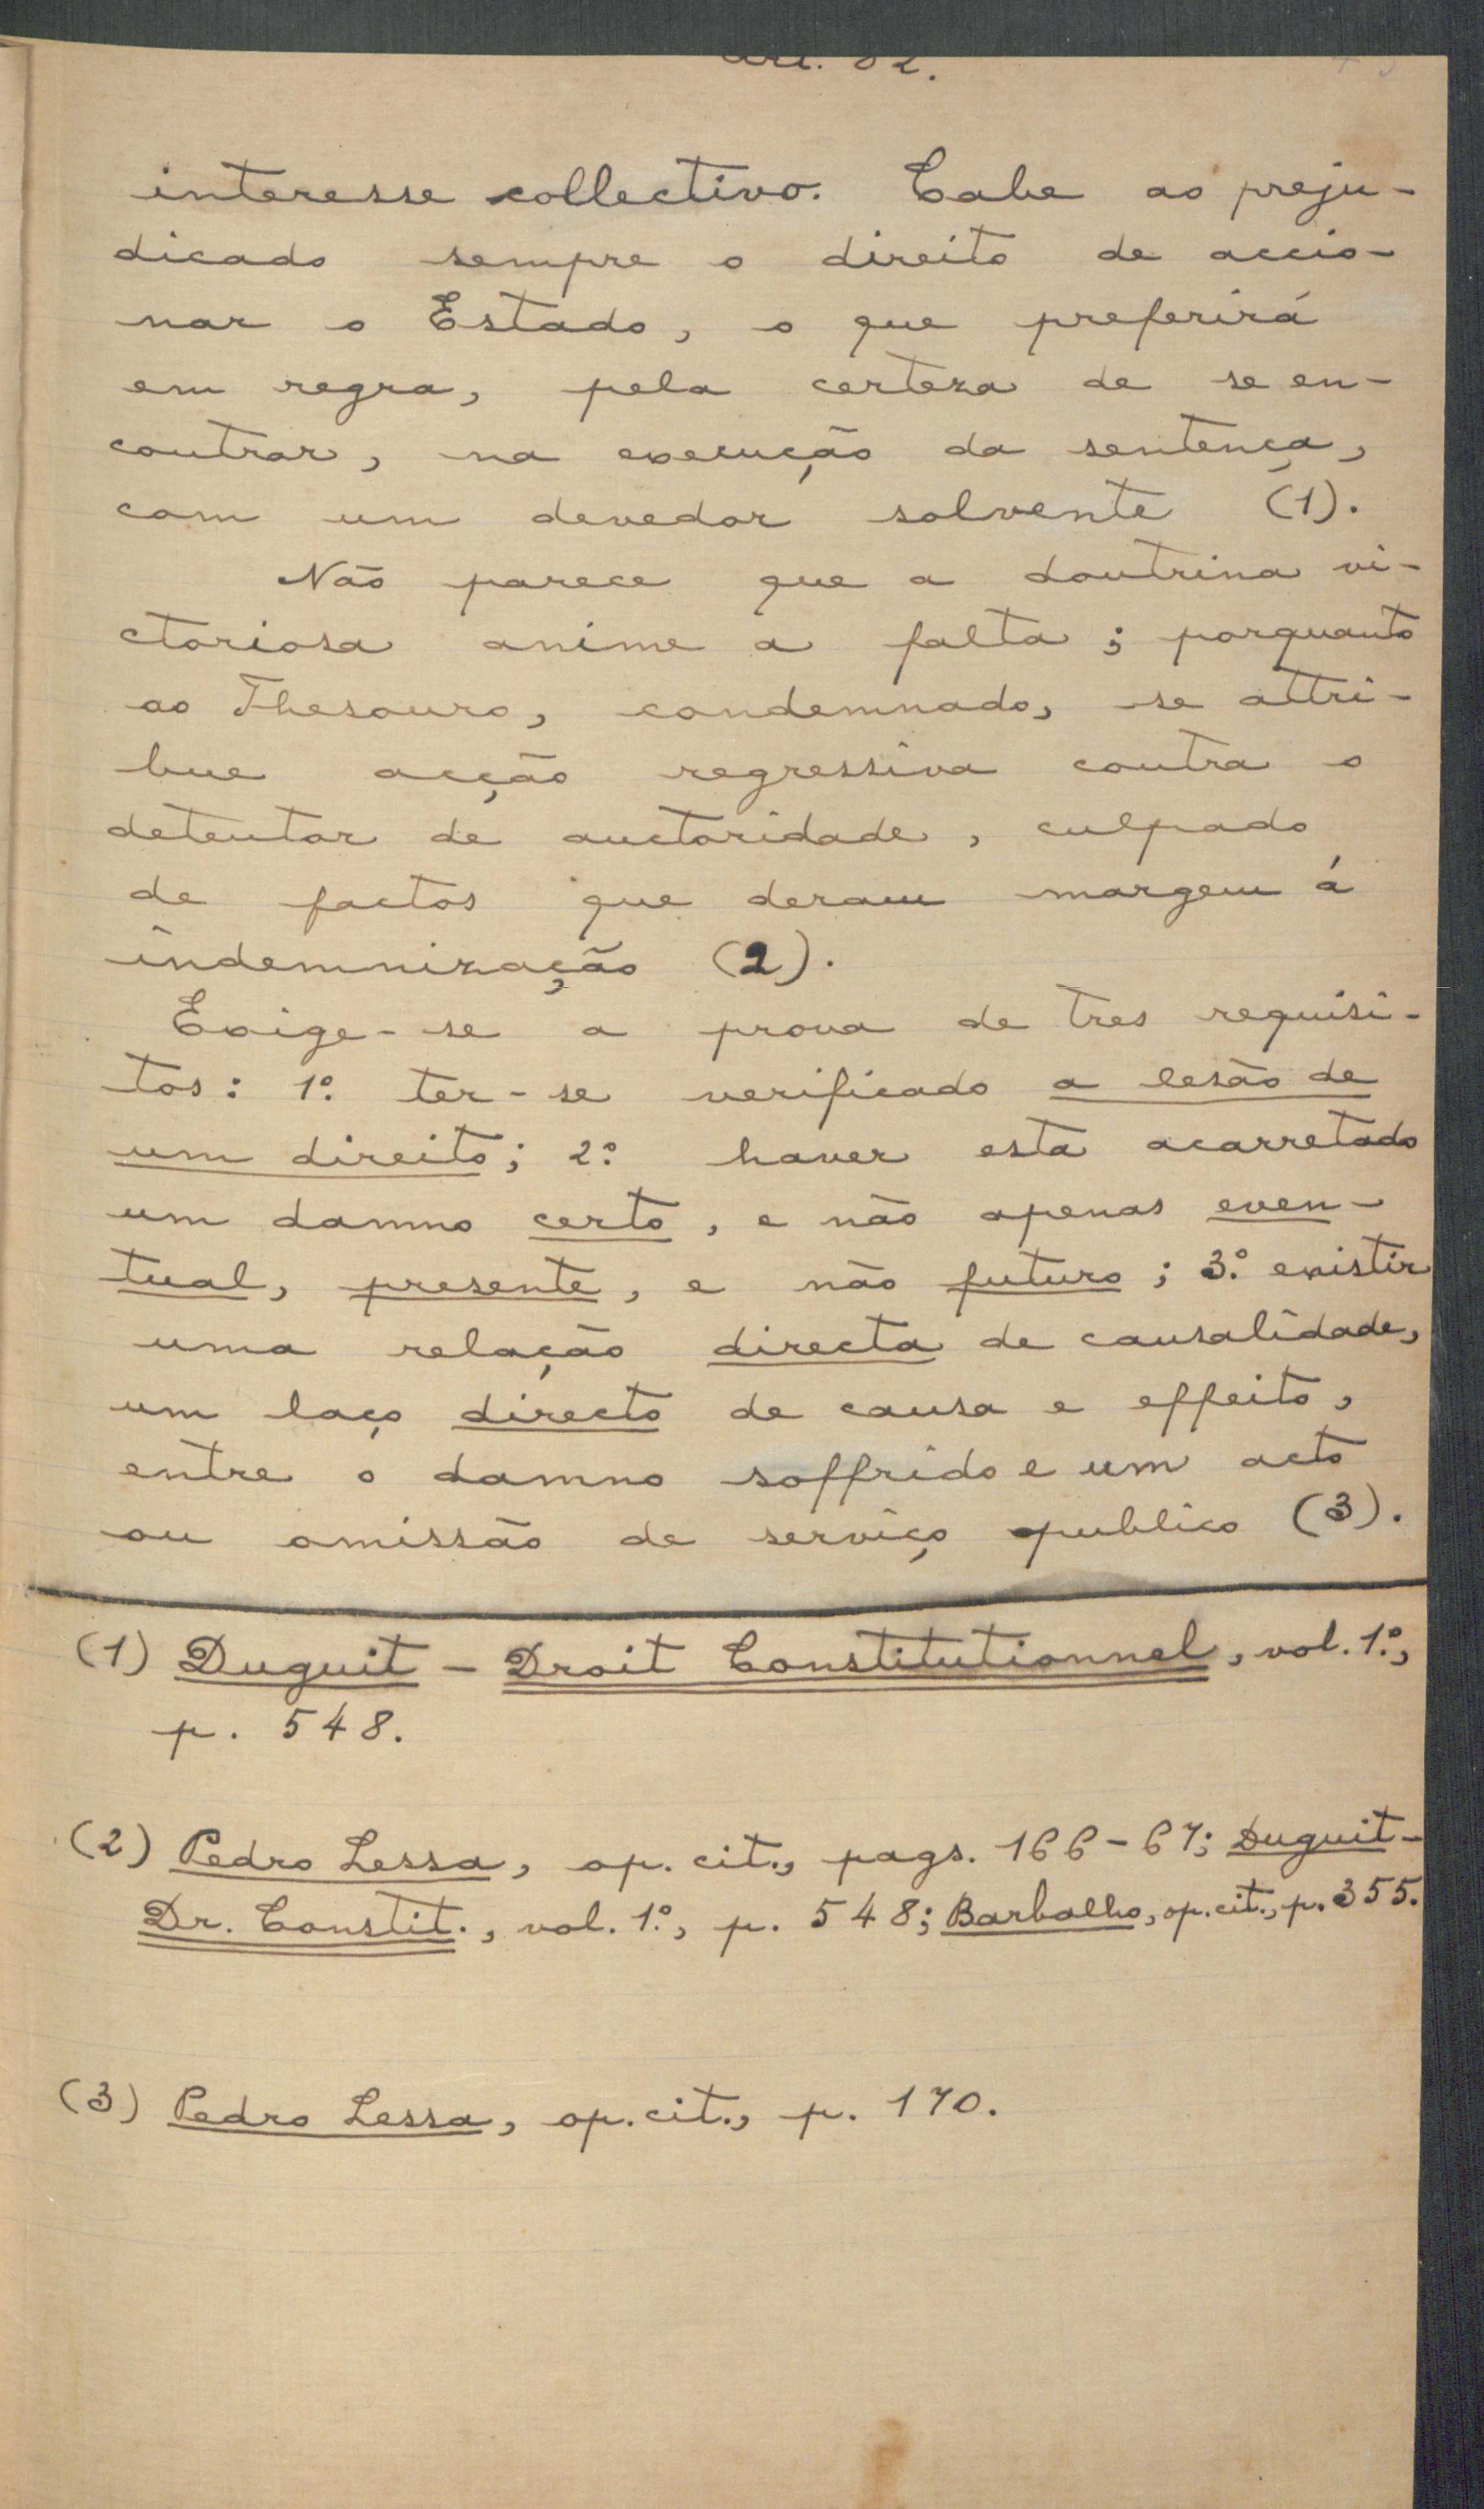 Art. 82.
interesse collectivo. Cabe ao preju-
dicado sempre o direito de accio-
nar o Estado, o que preferirá
em regra, pela certeza de se en-
contrar, na execução da sentença,
com um devedor solvente (1).
Não parece que a doutrina vi-
ctoriosa anime a falta; porquanto
ao Thesouro, condemnado, se attri-
bue acção regressiva contra o
detentor de auctoridade, culpado
de factos que deram margem á
indemnização (2).
Exige-se a prova de tres requisi-
tos: 1º. ter-se verificado a lesão de
um direito; 2º. haver esta acarretado
um damno certo, e não apenas even-
tual, presente, e não futuro; 3º. existir
uma relação directa de causalidade,
um laço directo de causa e effeito,
entre o damno soffrido e um acto
ou omissão de serviço publico (3).
(1) Duguit - Droit Constitutionnel, vol. 1º.,
p. 548.
(2) Pedro Lessa, op. cit., pags. 166-67; Duguit-
Dr. Constit., vol. 1º., p. 548; Barbalho, op. cit., p. 355.
(3) Pedro Lessa, op. cit., p. 170.